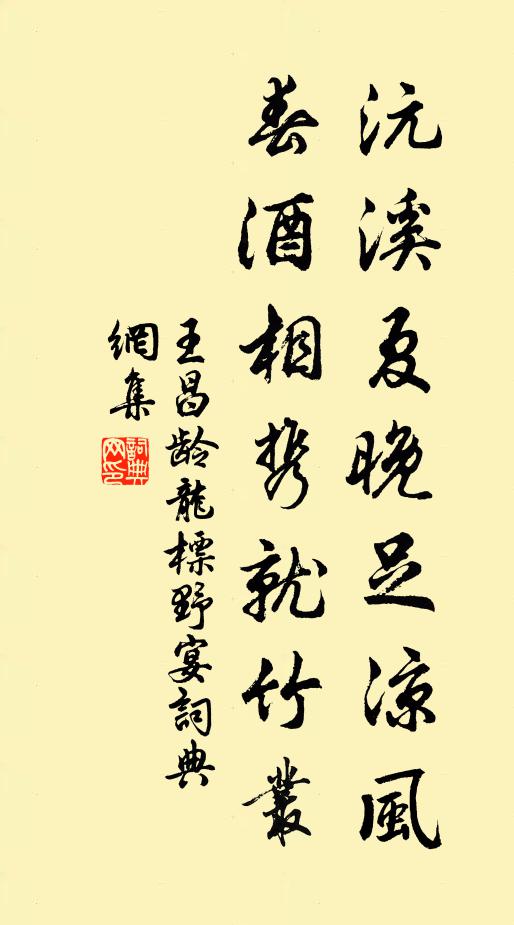 沅溪夏晚足凉風
春酒相携就竹叢
王昌龄龍標野宴詞典
網集
詞典网印